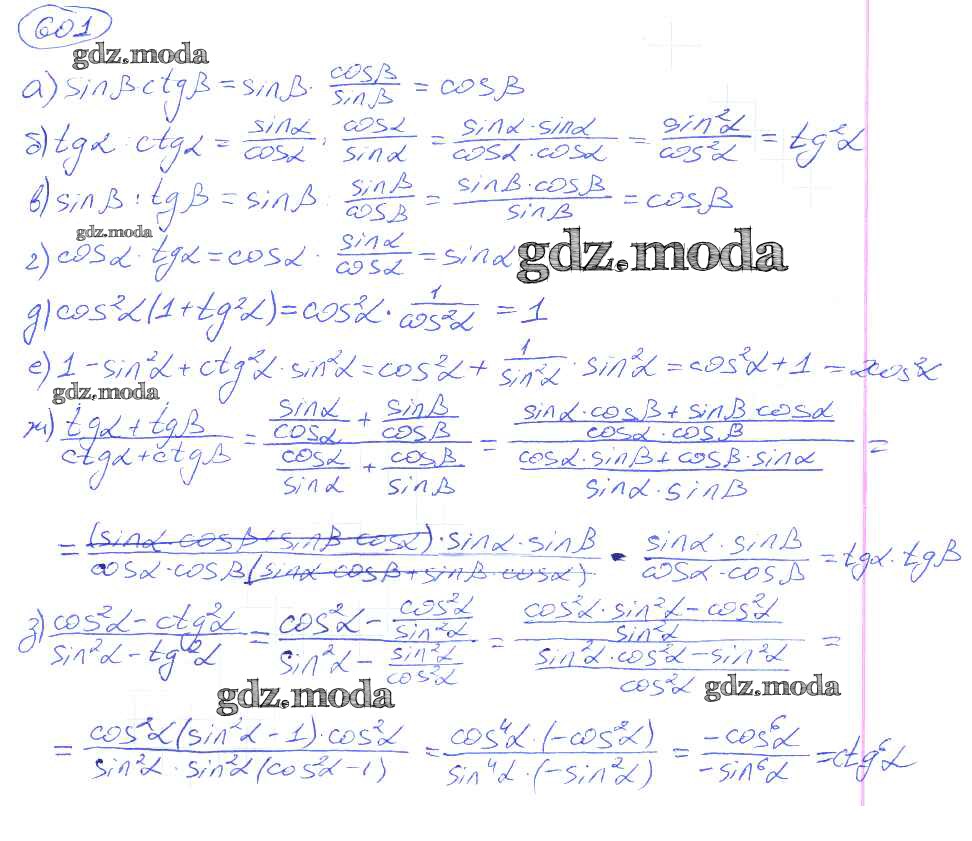 601
gdz.moda
а) sinβ ctgβ = sinβ · cosβ/sinβ = cosβ
б) tgα : ctgα = sinα/cosα : cosα/sinα = sinα · sinα/cosα · cosα = sin²α/cos²α = tg²α
в) sinβ : tgβ = sinβ : sinβ/cosβ = sinβ · cosβ/sinβ = cosβ
gdz.moda
г) cosα · tgα = cosα · sinα/cosα = sinα
gdz.moda
д) cos²α(1 + tg²α) = cos²α · 1/cos²α = 1
е) 1 - sin²α + ctg²α · sin²α = cos²α + 1/sin²α · sin²α = cos²α + 1 = 2cos²α
gdz.moda
ж) (tgα + tgβ)/(ctgα + ctgβ) = (sinα/cosα + sinβ/cosβ)/(cosα/sinα + cosβ/sinβ) = ((sinα · cosβ + sinβ cosα)/(cosα · cosβ))/((cosα · sinβ + cosβ · sinα)/(sinα · sinβ)) =
= ((sinα cosβ + sinβ cosα) · sinα · sinβ)/(cosα · cosβ(sinα cosβ + sinβ cosα)) · (sinα · sinβ)/(cosα · cosβ) = tgα · tgβ
з) (cos²α - ctg²α)/(sin²α - tg²α) = (cos²α - cos²α/sin²α)/(sin²α - sin²α/cos²α) = ((cos²α · sin²α - cos²α)/sin²α)/((sin²α · cos²α - sin²α)/cos²α) =
gdz.moda
gdz.moda
= (cos²α(sin²α - 1) · cos²α)/(sin²α · sin²α(cos²α - 1)) = (cos⁴α · (-cos²α))/(sin⁴α · (-sin²α)) = (-cos⁶α)/(-sin⁶α) = ctg⁶α